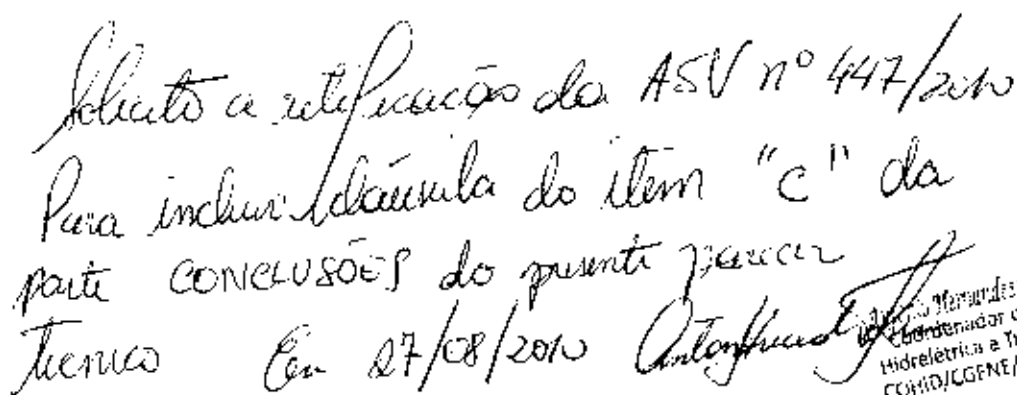 Solicito a retificação da ASV nº 447/2010
Para incluir cláusula do item "c" da
parte CONCLUSÕES do presente parecer
Técnico Em 27/08/2010
Coordenador
Hidrelétrica e
COHID/CGENE/